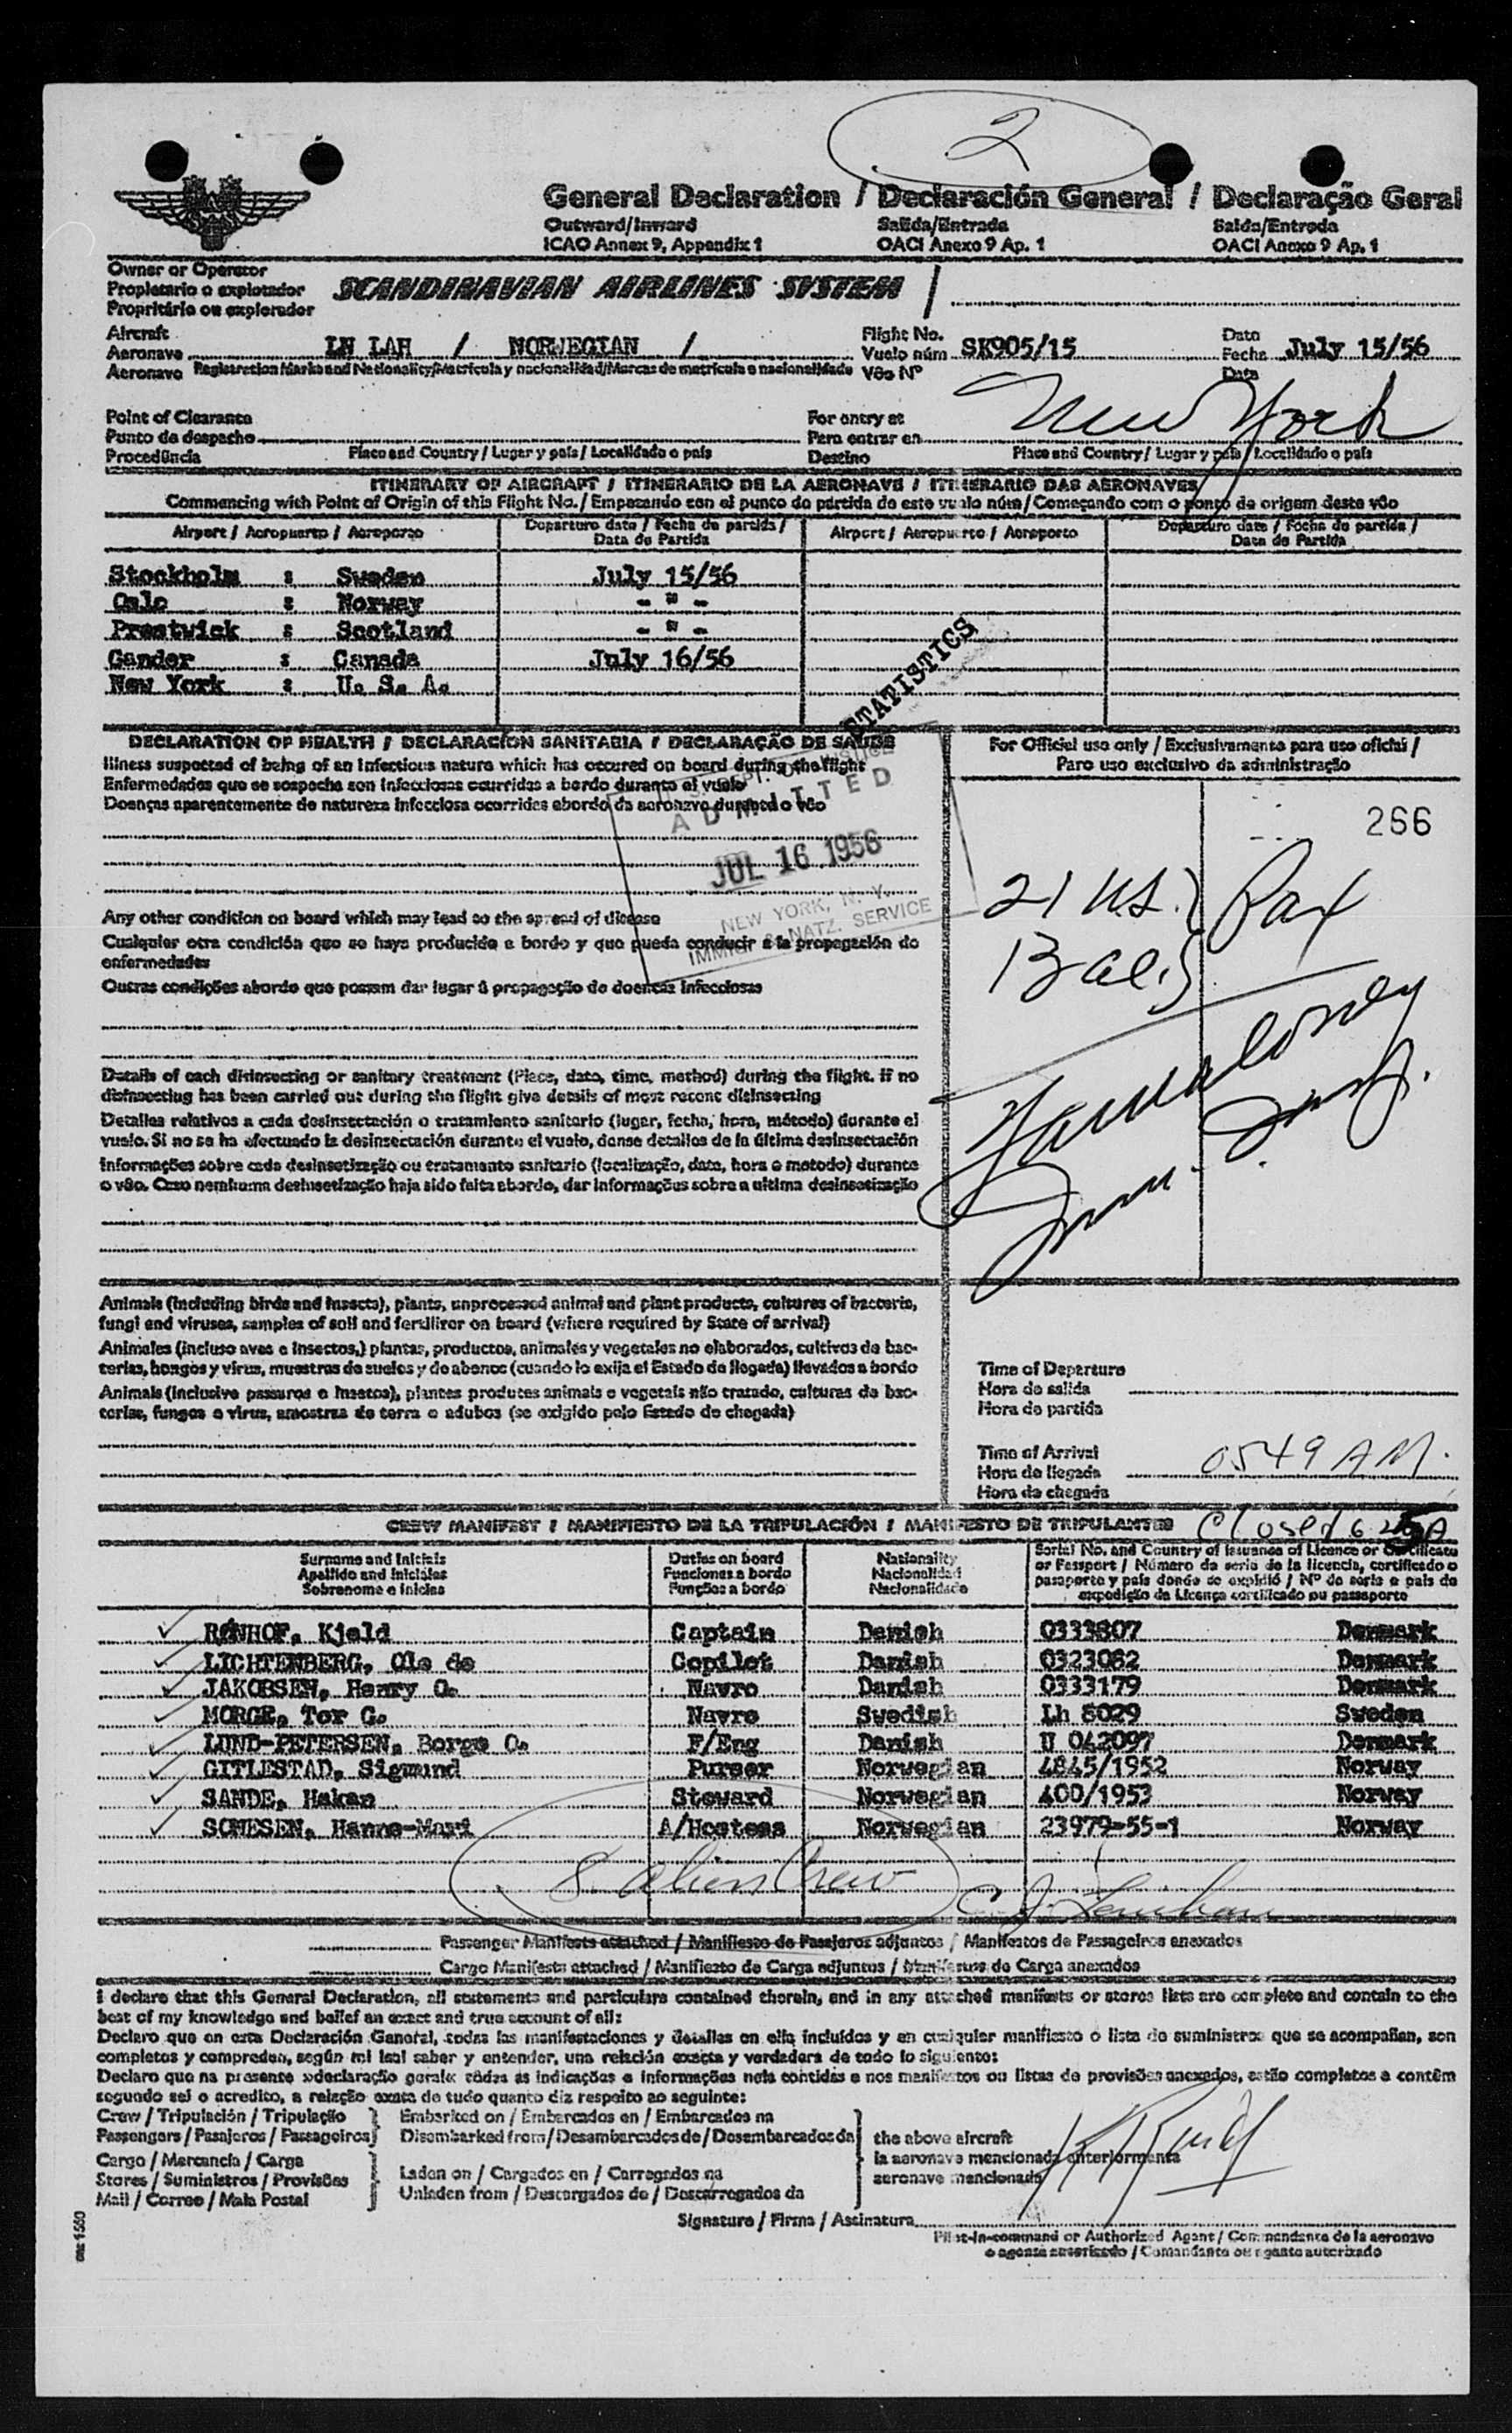 2
General Declaration / Declaración General / Declaração Geral
Outward/Inward Salida/Entrada Saida/Entrada
ICAO Annex 9, Appendix 1 OACI Anexo 9 Ap. 1 OACI Anexo 9 Ap. 1
Owner or Operator
Propietario o explotador SCANDINAVIAN AIRLINES SYSTEM /
Propritário ou explorador
Aircraft Flight No. Date
Aeronave LN LAH / NORWEGIAN / Vuelo núm SK905/15 Fecha July 15/56
Aeronave Registration Marks and Nationality/Matrícula y nacionalidad/Marcas de matrícula e nacionalidade Vôo Nº Data
Point of Clearance For entry at New York
Punto de despacho Para entrar en
Procedência Place and Country / Lugar y país / Localidade e país Destino Place and Country / Lugar y país / Localidade e país
ITINERARY OF AIRCRAFT / ITINERARIO DE LA AERONAVE / ITINERARIO DAS AERONAVES
Commencing with Point of Origin of this Flight No. / Empezando con el punto de partida de este vuelo núm / Começando com o ponto de origem deste vôo
Airport / Aeropuerto / Aeroporto Departure date / Fecha de partida / Data de Partida Airport / Aeropuerto / Aeroporto Departure date / Fecha de partida / Data de Partida
Stockholm : Sweden July 15/56
Oslo : Norway - " -
Prestwick : Scotland - " -
Gander : Canada July 16/56
New York : U. S. A.
STATISTICS
DECLARATION OF HEALTH / DECLARACIÓN SANITARIA / DECLARAÇÃO DE SAÚDE
Illness suspected of being of an infectious nature which has occured on board during the flight
Enfermedades que se sospecha son infecciosas ocurridas a bordo durante el vuelo
Doenças aparentemente de natureza infecciosa ocorridas abordo da aeronave durante o vôo
U. S. DEPT. OF JUSTICE
ADMITTED
JUL 16 1956
NEW YORK, N. Y.
IMMIG. & NATZ. SERVICE
Any other condition on board which may lead to the spread of disease
Cualquier otra condición que se haya producido a bordo y que pueda conducir a la propagación de
enfermedades
Outras condições abordo que possam dar lugar á propagação de doencas infecciosas
Details of each disinsecting or sanitary treatment (Place, date, time, method) during the flight. If no
disinsecting has been carried out during the flight give details of most recent disinsecting
Detalles relativos a cada desinsectación o tratamiento sanitario (lugar, fecha, hora, método) durante el
vuelo. Si no se ha efectuado la desinsectación durante el vuelo, danse detalles de la última desinsectación
Informações sobre cada desinsetização ou tratamento sanitario (localização, data, hora e metodo) durante
o vôo. Caso nenhuma desinsetização haja sido feita abordo, dar informações sobre a ultima desinsetização
For Official use only / Exclusivamente para uso oficial /
Paro uso exclusivo da administração
266
21 U.S. } Pax
13 al. }
Animals (including birds and insects), plants, unprocessed animal and plant products, cultures of bacteria,
fungi and viruses, samples of soil and fertilizer on board (where required by State of arrival)
Animales (incluso aves e insectos,) plantas, productos, animales y vegetales no elaborados, cultivos de bac-
terias, hongos y virus, muestras de suelos y de abonos (cuando lo exija el Estado de llegada) llevados a bordo
Animais (inclusive passaros e insetos), plantes produtes animais e vegetais não tratado, culturas de bac-
terias, fungos e virus, amostras de terra e adubos (se exigido pelo Estado de chegada)
Time of Departure
Hora de salida
Hora de partida
Time of Arrival
Hora de llegada 0549 AM.
Hora de chegada
CREW MANIFEST / MANIFIESTO DE LA TRIPULACIÓN / MANIFESTO DE TRIPULANTES Closed
Surname and Initials Duties on board Nationality Serial No. and Country of Issuance of Licence or Certificate
Apellido and Iniciales Funciones a bordo Nacionalidad or Passport / Número de serie de la licencia, certificado o
Sobrenome e inicias Funções a bordo Nacionalidade pasaporte y país donde se expidió / Nº de serie e pais de
expedição da Licença certificado ou passaporte
RØNHOF, Kjeld Captain Danish 0333807 Denmark
LICHTENBERG, Ole de Copilot Danish 0323082 Denmark
JAKOBSEN, Henry O. Navro Danish 0333179 Denmark
MORGE, Tor G. Navro Swedish Lh 8029 Sweden
LUND-PETERSEN, Borge O. F/Eng Danish U 042097 Denmark
GITLESTAD, Sigmund Purser Norwegian 4845/1952 Norway
SANDE, Hakan Steward Norwegian 400/1953 Norway
SCHESEN, Hanne-Mari A/Hostess Norwegian 23979-55-1 Norway
8 alien Crew
Passenger Manifests attached / Manifiesto de Pasajeros adjuntos / Manifestos de Passageiros anexados
Cargo Manifests attached / Manifiesto de Carga adjuntos / Manifestos de Carga anexados
I declare that this General Declaration, all statements and particulars contained therein, and in any attached manifests or stores lists are complete and contain to the
best of my knowledge and belief an exact and true account of all:
Declaro que en esta Declaración Ganeral, todas las manifestaciones y detalles en ella incluidos y en cualquier manifiesto o lista de suministros que se acompañan, son
completos y compreden, según mi leal saber y entender, una relación exacta y verdadera de todo lo siguiente:
Declaro que na presente »declaração gerale todas as indicações e informações nela contidas e nos manifestos ou listas de provisões anexados, estão completos e contêm
segundo sei o acredito, a relação exata de tudo quanto diz respeito ao seguinte:
Crew / Tripulación / Tripulação } Embarked on / Embarcados en / Embarcados na
Passengers / Pasajeros / Passageiros } Disembarked from / Desambarcados de / Desembarcados da } the above aircraft
Cargo / Mercancia / Carga la aeronave mencionada anteriormente
Stores / Suministros / Provisões } Laden on / Cargados en / Carregados na aeronave mencionada
Mail / Correo / Mala Postal Unladen from / Descargados de / Descarregados da
Signature / Firma / Assinatura
Pilot-in-command or Authorized Agent / Commendante de la aeronave
o agente autorizado / Comandante ou agante autorizado